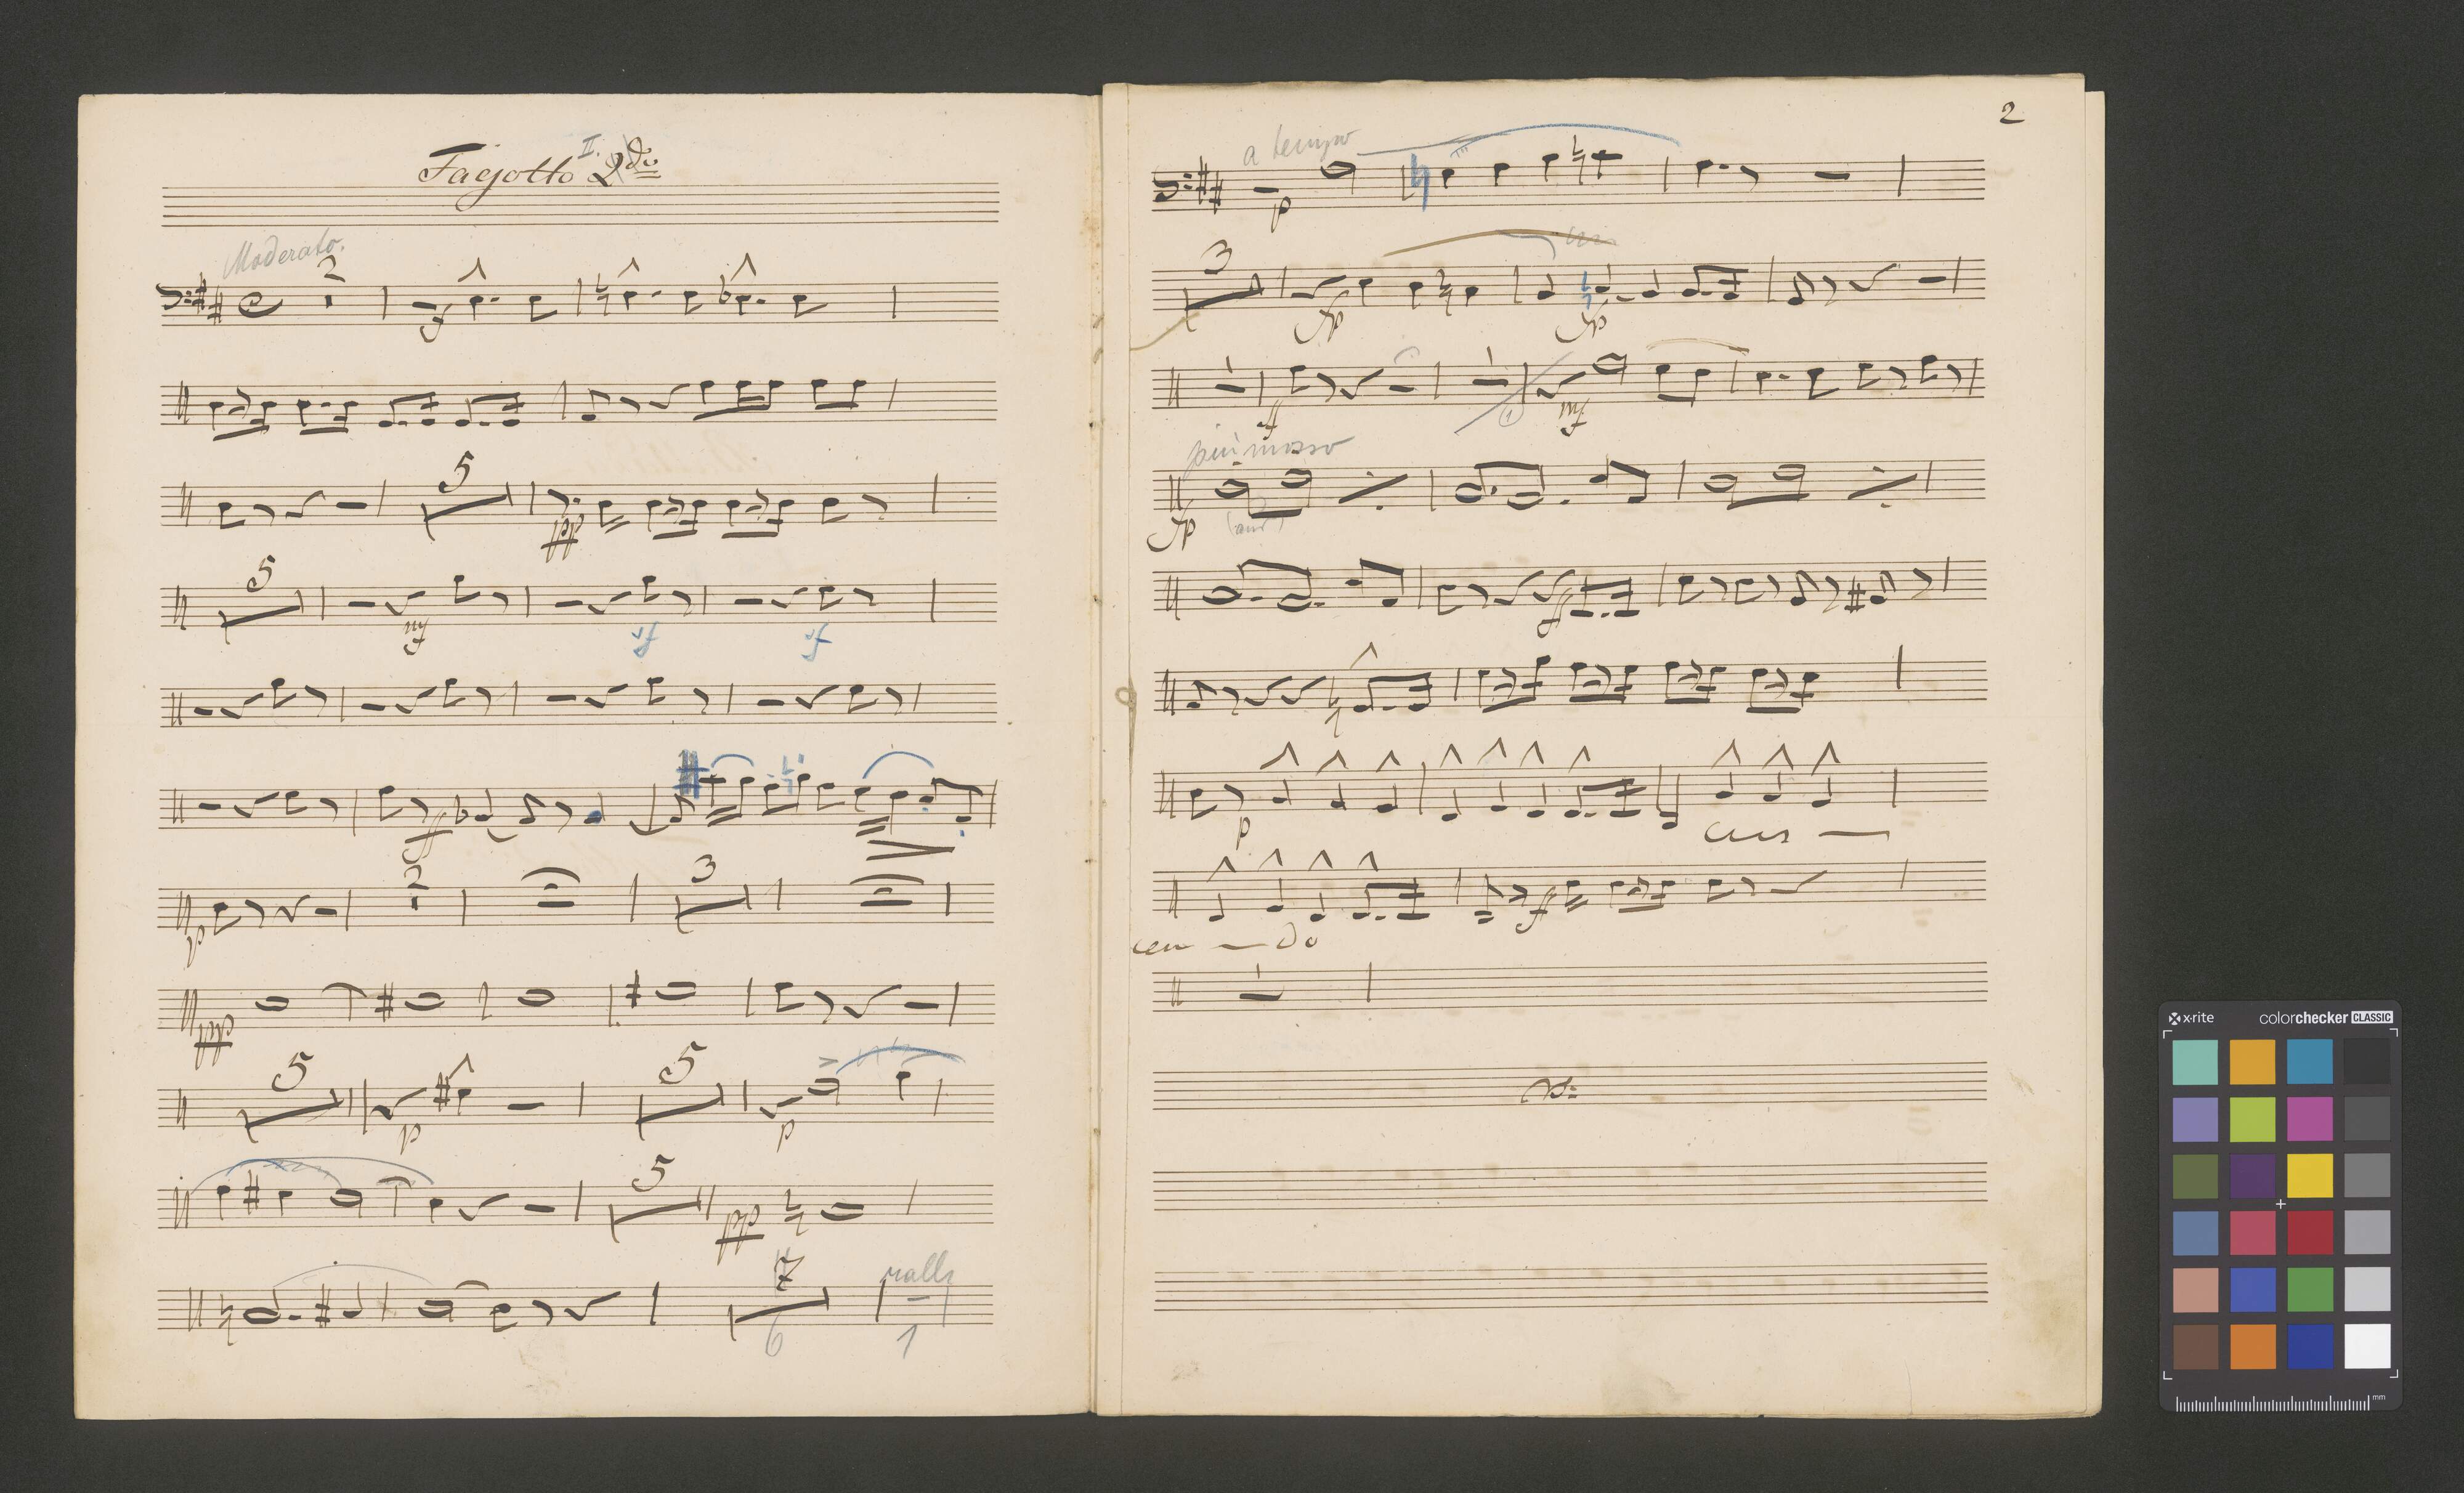 Fagotto II. 2do
Moderato.
2
f
5
pp
5
mf
f
f
ff
p
2
3
pp
5
5
p
p
5
pp
7
6
rall
1
2
a tempo
p
3
fp
fp
ff
1
mf
più mosso
fp
ff
p
cres
cen do
f
x-rite
colorchecker CLASSIC
mm